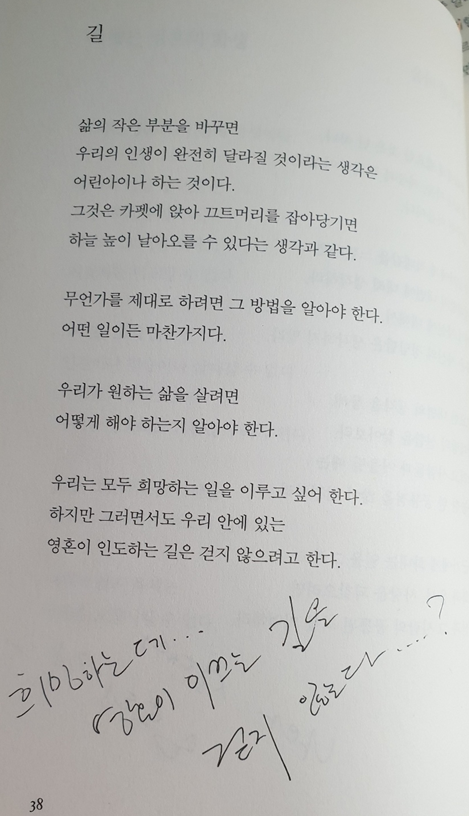 길
삶의 작은 부분을 바꾸면
우리의 인생이 완전히 달라질 것이라는 생각은
어린아이나 하는 것이다.
그것은 카펫에 앉아 끄트머리를 잡아당기면
하늘 높이 날아오를 수 있다는 생각과 같다.
무언가를 제대로 하려면 그 방법을 알아야 한다.
어떤 일이든 마찬가지다.
우리가 원하는 삶을 살려면
어떻게 해야 하는지 알아야 한다.
우리는 모두 희망하는 일을 이루고 싶어 한다.
하지만 그러면서도 우리 안에 있는
영혼이 인도하는 길은 걷지 않으려고 한다.
희망하는데...
영혼이 이끄는 길을
걷지 않는다....?
38